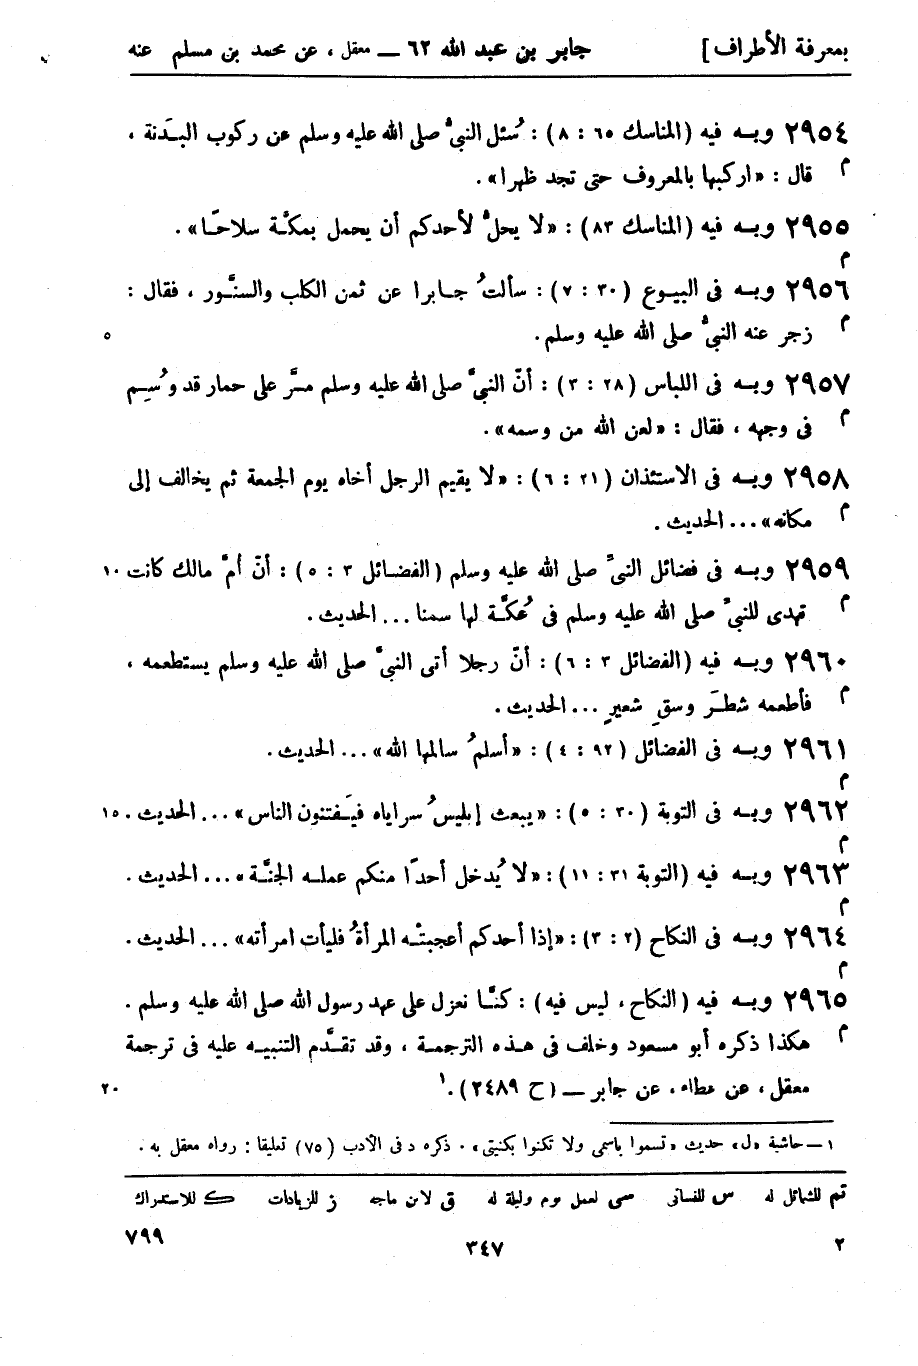 بمعرفة الأطراف]   جابر بن عبد الله ٦٢ — معقل، عن محمد بن مسلم عنه
٢٩٥٤ وبـه فيه (المناسك ٦٥ : ٨) : سُئل النبيُّ صلى الله عليه وسلم عن ركوب البدَنة ،
م قال : «اركبها بالمعروف حتى تجد ظهرا».
٢٩٥٥ وبـه فيه (المناسك ٨٣) : «لا يحلُّ لأحدكم أن يحمل بمكّة سلاحًا».
م
٢٩٥٦ وبـه فى البيوع (٣٠ : ٧) : سألتُ جابرا عن ثمن الكلب والسنَّور ، فقال :
م زجر عنه النبيُّ صلى الله عليه وسلم. ٥
٢٩٥٧ وبـه فى اللباس (٢٨ : ٣) : أنّ النبيَّ صلى الله عليه وسلم مرَّ على حمار قد وُسِم
م فى وجهه ، فقال : «لعن الله من وسمه».
٢٩٥٨ وبـه فى الاستئذان (٢١ : ٦) : «لا يقيم الرجل أخاه يوم الجمعة ثم يخالف إلى
م مكانه»... الحديث.
٢٩٥٩ وبـه فى فضائل النبيّ صلى الله عليه وسلم (الفضائل ٣ : ٥) : أنّ أمّ مالك كانت ١٠
م تهدى للنبيّ صلى الله عليه وسلم فى عُكّة لها سمنا... الحديث.
٢٩٦٠ وبـه فيه (الفضائل ٣ : ٦) : أنّ رجلا أتى النبيَّ صلى الله عليه وسلم يستطعمه ،
م فأطعمه شطرَ وسقِ شعيرٍ ... الحديث.
٢٩٦١ وبـه فى الفضائل (٩٢ : ٤) : «أسلمُ سالمها الله»... الحديث.
م
٢٩٦٢ وبـه فى التوبة (٣٠ : ٥) : «يبعث إبليسُ سراياه فيَفتنون الناس»... الحديث. ١٥
م
٢٩٦٣ وبـه فيه (التوبة ٣١ : ١١) : «لا يُدخل أحدًا منكم عملـه الجنّة»... الحديث.
م
٢٩٦٤ وبـه فى النكاح (٢ : ٣) : «إذا أحدكم أعجبتْـه المرأةُ فليأت امرأته»... الحديث.
م
٢٩٦٥ وبـه فيه (النكاح، ليس فيه) : كنّا نعزل على عهد رسول الله صلى الله عليه وسلم.
م هكذا ذكره أبو مسعود وخلف فى هـذه الترجمـة ، وقد تقدَّم التنبيـه عليه فى ترجمة
معقل، عن عطاء، عن جابر — (ح ٢٤٨٩).١ ٢٠
١ — حاشية «ل» حديث «تسموا باسمى ولا تكنوا بكنيتى». ذكره د فى الأدب (٧٥) تعليقا : رواه معقل به.
تم للشمائل له   س للنسائى   سى لعمل يوم وليلة له   ق لابن ماجه   ز للزيادات   ك للاستدراك
٢   ٣٤٧   ٧٩٩